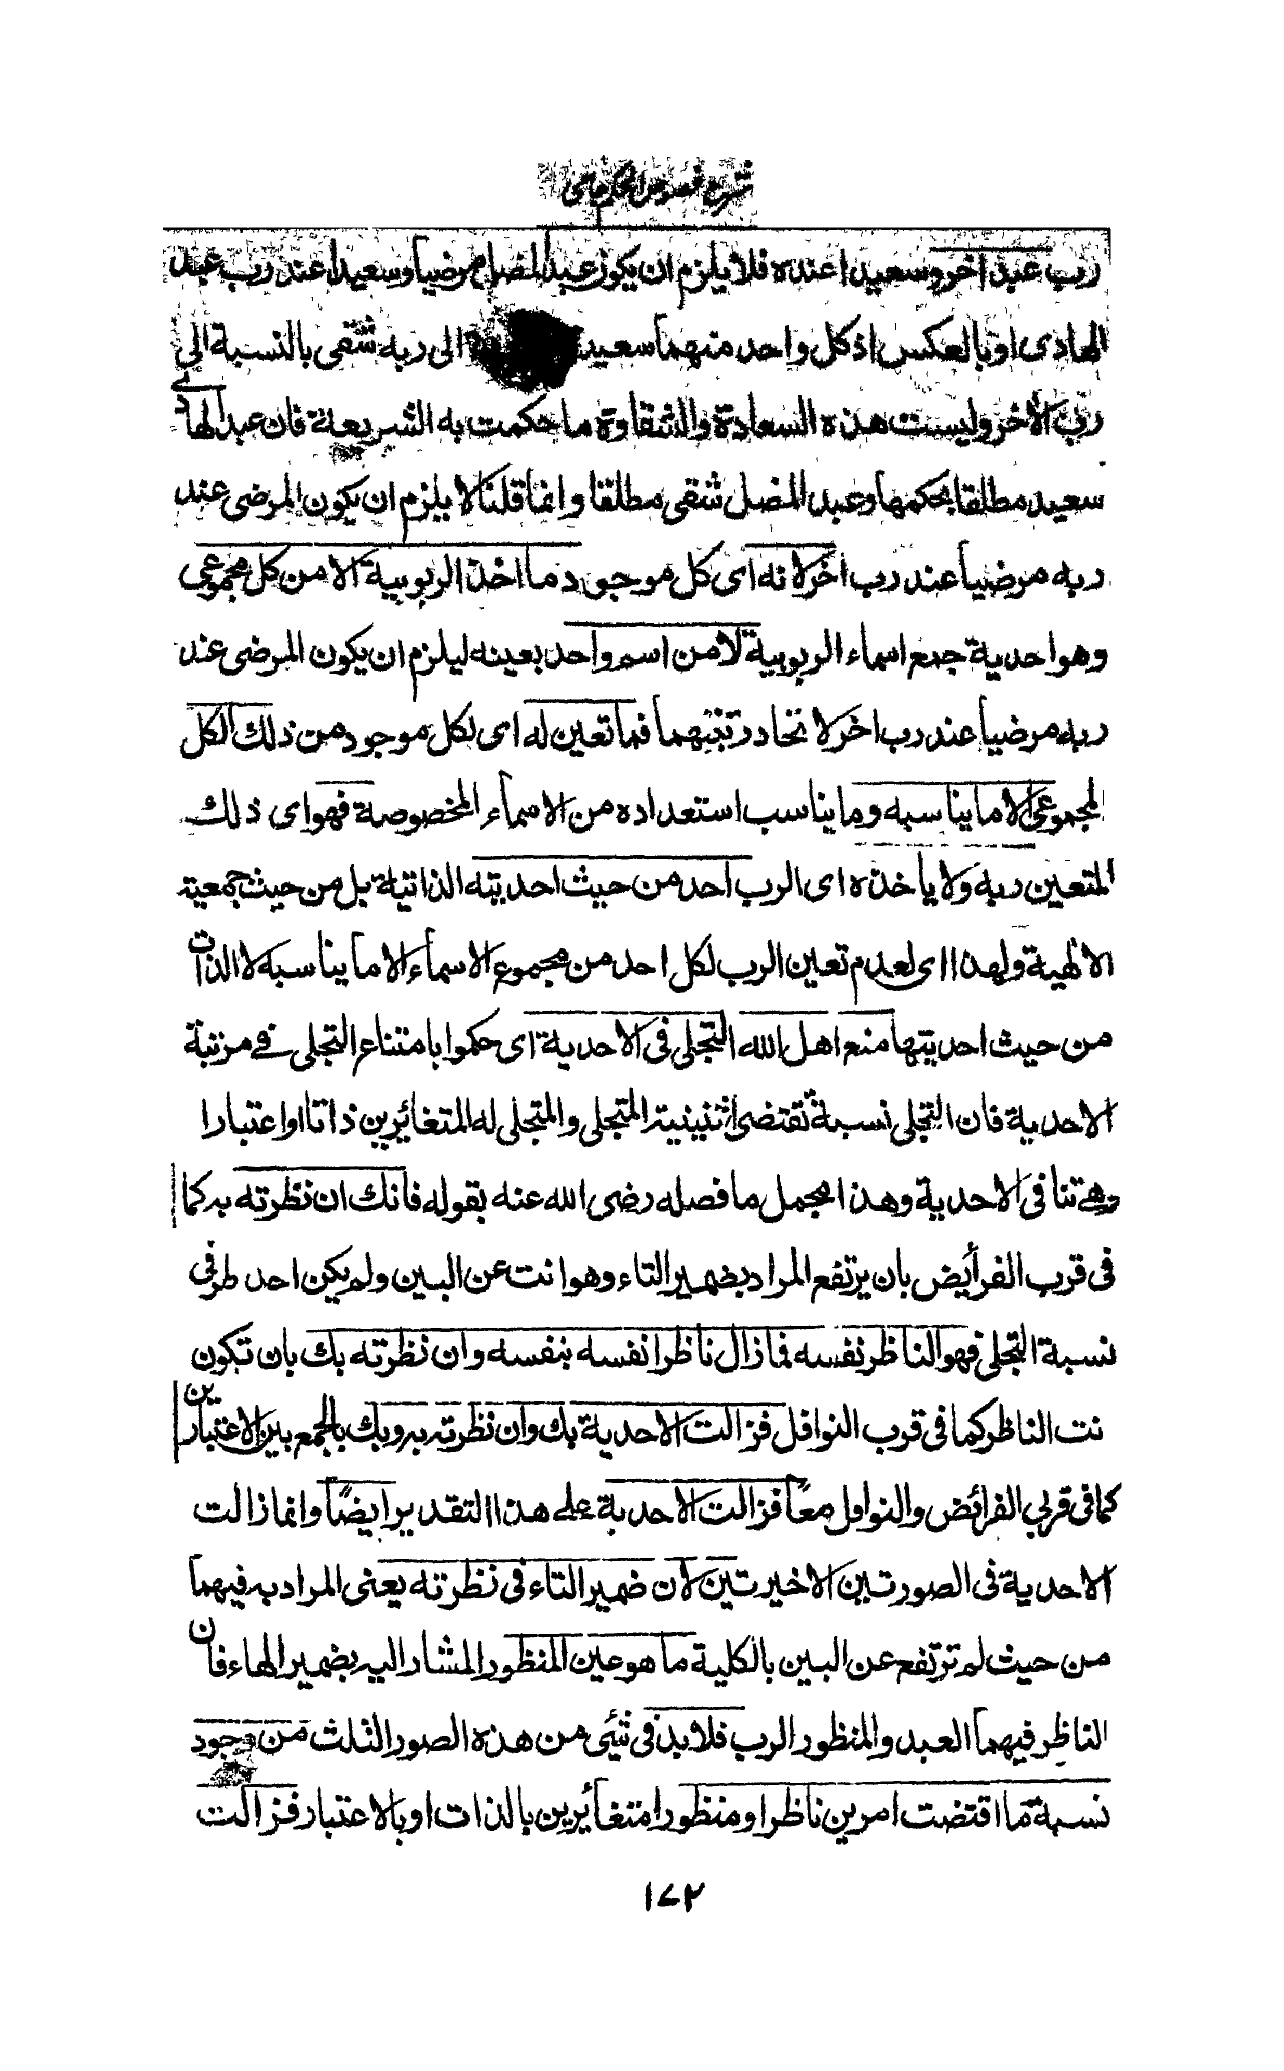 شرح فصوص الحكم جامى
رب عبد اخر وسعيدا عنده فلا يلزم ان يكون عبد المضل مرضيا وسعيدا عند رب عبد
الهادى او بالعكس اذ كل واحد منهما سعيد الى ربه شقى بالنسبة الى
رب الاخر وليست هذه السعادة والشقاوة ما حكمت به الشريعة فان عبد الهادى
سعيد مطلقا بحكمها وعبد المضل شقى مطلقا وانما قلنا لا يلزم ان يكون المرضى عند
ربه مرضيا عند رب اخر لانه اى كل موجود ما اخذ الربوبية الا من كل مجموعى
وهو احدية جمع اسماء الربوبية لا من اسم واحد بعينه ليلزم ان يكون المرضى عند
ربه مرضيا عند رب اخر لاتحاد رتبتهما فما تعين له اى لكل موجود من ذلك الكل
المجموعى الا ما يناسبه وما يناسب استعداده من الاسماء المخصوصة فهو اى ذلك
المتعين ربه ولا ياخذه اى الرب احد من حيث احديته الذاتية بل من حيث جمعيته
الالهية ولهذا اى لعدم تعين الرب لكل احد من مجموع الاسماء الا ما يناسبه لا الذات
من حيث احديتها منع اهل الله التجلى فى الاحدية اى حكموا بامتناع التجلى في مرتبة
الاحدية فان التجلى نسبة تقتضى اثنينية المتجلى والمتجلى له المتغائرين ذاتا او اعتبارا
وهى تنافى الاحدية وهذا المجمل ما فصله رضى الله عنه بقوله فانك ان نظرته به كما
فى قرب الفرائض بان يرتفع المراد بضمير التاء وهو انت عن البين ولم يكن احد طرفى
نسبة التجلى فهو الناظر نفسه فما زال ناظرا نفسه بنفسه وان نظرته بك بان تكون
نت الناظر كما فى قرب النوافل فزالت الاحدية بك وان نظرته به وبك بالجمع بين الاعتبارين
كما فى قربي الفرائض والنوافل معاً فزالت الاحدية على هذا التقدير ايضاً وانما زالت
الاحدية فى الصورتين الاخيرتين لان ضمير التاء فى نظرته يعنى المراد به فيهما
من حيث لم ترتفع عن البين بالكلية ما هو عين المنظور المشار اليه بضمير الهاء فان
الناظر فيهما العبد والمنظور الرب فلا بد فى شئى من هذه الصور الثلث من وجود
نسبة ما اقتضت امرين ناظرا ومنظورا متغائرين بالذات او بالاعتبار فزالت
١٧٢